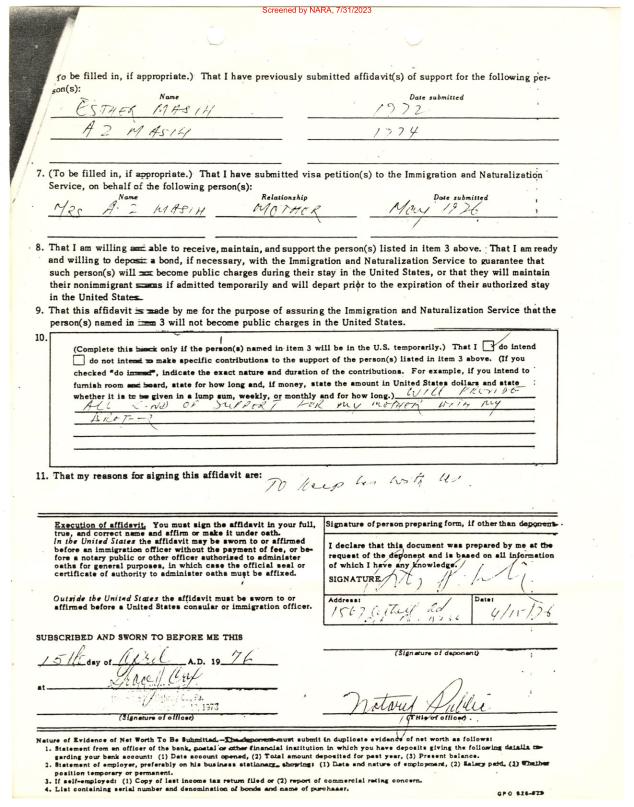 Screened by NARA, 7/31/2023
To be filled in, if appropriate.) That I have previously submitted affidavit(s) of support for the following per-
son(s):
Name Date submitted
ESTHER MASIH 1972
A Z MASIH 1974
7. (To be filled in, if appropriate.) That I have submitted visa petition(s) to the Immigration and Naturalization
Service, on behalf of the following person(s):
Name Relationship Date submitted
Mrs A. Z MASIH MOTHER May 1976
8. That I am willing and able to receive, maintain, and support the person(s) listed in item 3 above. That I am ready
and willing to deposit a bond, if necessary, with the Immigration and Naturalization Service to guarantee that
such person(s) will not become public charges during their stay in the United States, or that they will maintain
their nonimmigrant status if admitted temporarily and will depart prior to the expiration of their authorized stay
in the United States.
9. That this affidavit is made by me for the purpose of assuring the Immigration and Naturalization Service that the
person(s) named in item 3 will not become public charges in the United States.
10.
(Complete this block only if the person(s) named in item 3 will be in the U.S. temporarily.) That I do intend
do not intend to make specific contributions to the support of the person(s) listed in item 3 above. (If you
checked "do intend", indicate the exact nature and duration of the contributions. For example, if you intend to
furnish room and board, state for how long and, if money, state the amount in United States dollars and state
whether it is to be given in a lump sum, weekly, or monthly and for how long.) WILL PROVIDE
ALL KIND OF SUPPORT FOR my MOTHER WITH MY
11. That my reasons for signing this affidavit are: To keep her with us.
Execution of affidavit. You must sign the affidavit in your full,
true, and correct name and affirm or make it under oath.
In the United States the affidavit may be sworn to or affirmed
before an immigration officer without the payment of fee, or be-
fore a notary public or other officer authorized to administer
oaths for general purposes, in which case the official seal or
certificate of authority to administer oaths must be affixed.
Outside the United States the affidavit must be sworn to or
affirmed before a United States consular or immigration officer.
Signature of person preparing form, if other than deponent.
I declare that this document was prepared by me at the
request of the deponent and is based on all information
of which I have any knowledge.
SIGNATURE
Address: Date:
1567 Rd 4/15/76
SUBSCRIBED AND SWORN TO BEFORE ME THIS
15th day of April A.D. 19 76
at
(Signature of deponent)
Notary Public
(Signature of officer) (Title of officer)
Nature of Evidence of Net Worth To Be Submitted. The deponent must submit in duplicate evidence of net worth as follows:
1. Statement from an officer of the bank, postal or other financial institution in which you have deposits giving the following details re-
garding your bank account: (1) Date account opened, (2) Total amount deposited for past year, (3) Present balance.
2. Statement of employer, preferably on his business stationary, showing: (1) Date and nature of employment, (2) Salary paid, (3) Whether
position temporary or permanent.
3. If self-employed: (1) Copy of last income tax return filed or (2) report of commercial rating concern.
4. List containing serial number and denomination of bonds and name of purchaser.
GPO 826-873